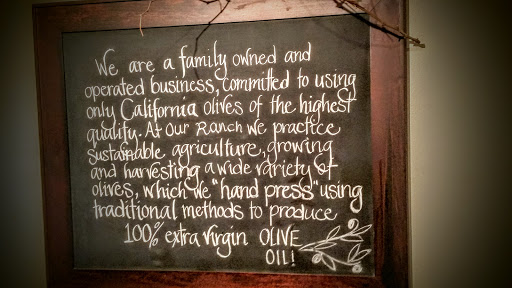 We are a family owned and
operated business, committed to using
only California olives of the highest
quality. At Our Ranch We practice
sustainable agriculture, growing
and harvesting a wide variety of
olives, which we "hand press" using
traditional methods to produce
100% extra virgin OLIVE
OIL!